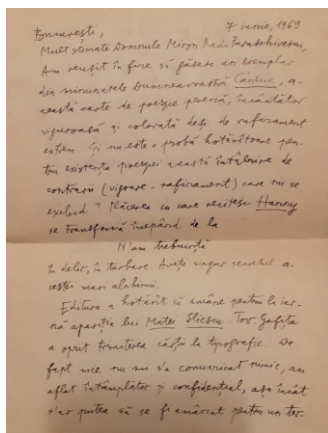 București, 7 iunie, 1969
Mult stimate Domnule Miron Radu Paraschivescu,
Am reușit în fine să găsesc un exemplar
din minunatele Dumneavoastră Cântice, a-
ceastă carte de poezie perversă, încântător
viguroasă și colorată deși de rafinament
extrem. Și nu este o probă hotărîtoare pen-
tru existența poeziei această întâlnire de
contrarii (vigoare - rafinament) care nu se
exclud? Plăcerea cu care recitesc
se transformă începând de la
N'am trebuință
în delir, în turbare. Aveți singur secretul a-
cestei mari alchimii.
Editura a hotărît să amâne pentru la iar-
nă apariția lui Matei Iliescu. Tov. Gafița
a oprit trimiterea cărții la tipografie. De
fapt mie nu mi s'a comunicat nimic, am
aflat întâmplător și confidențial, așa încât
s'ar putea să se fi amânat pentru un ter-